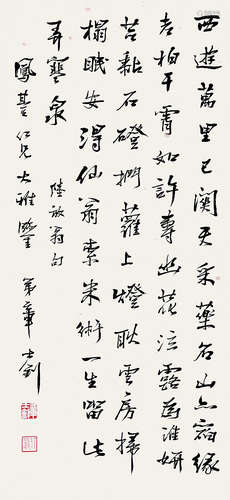 西遊萬里已關天采藥名山亦宿緣
老柏干霄如許壽幽花泣露為誰妍
苔黏石磴捫蘿上燈耿雲房掃
榻眠安得仙翁索米術一生留此
弄寒泉 陸放翁句
鳳仁兄大雅鑒 弟章士釗